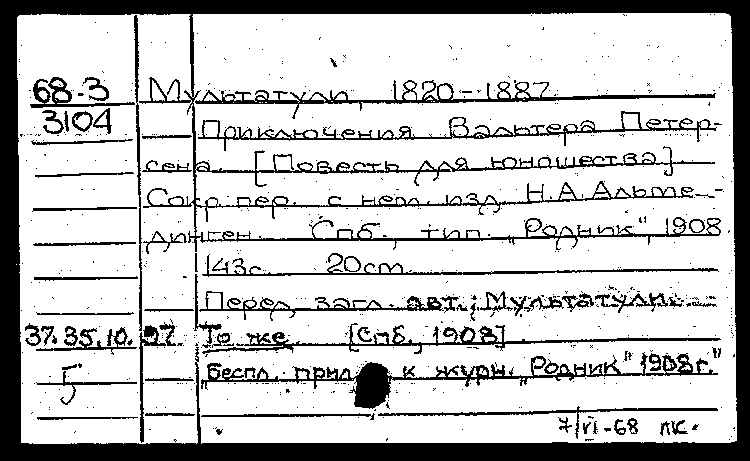 68-3 Мультатули, 1820-1887
3104
Приключения Вальтера Петер-
сена. [Повесть для юношества].
Сокр. пер. с нем. изд. Н.А. Альме-
динген. Спб., тип. "Родник", 1908
143с. 20см.
Перед загл. авт.: Мультатули.
37.35.10.97 То же. [Спб., 1908].
5 "Беспл. прил. к журн. "Родник" 1908г."
7/VI-68 лк.